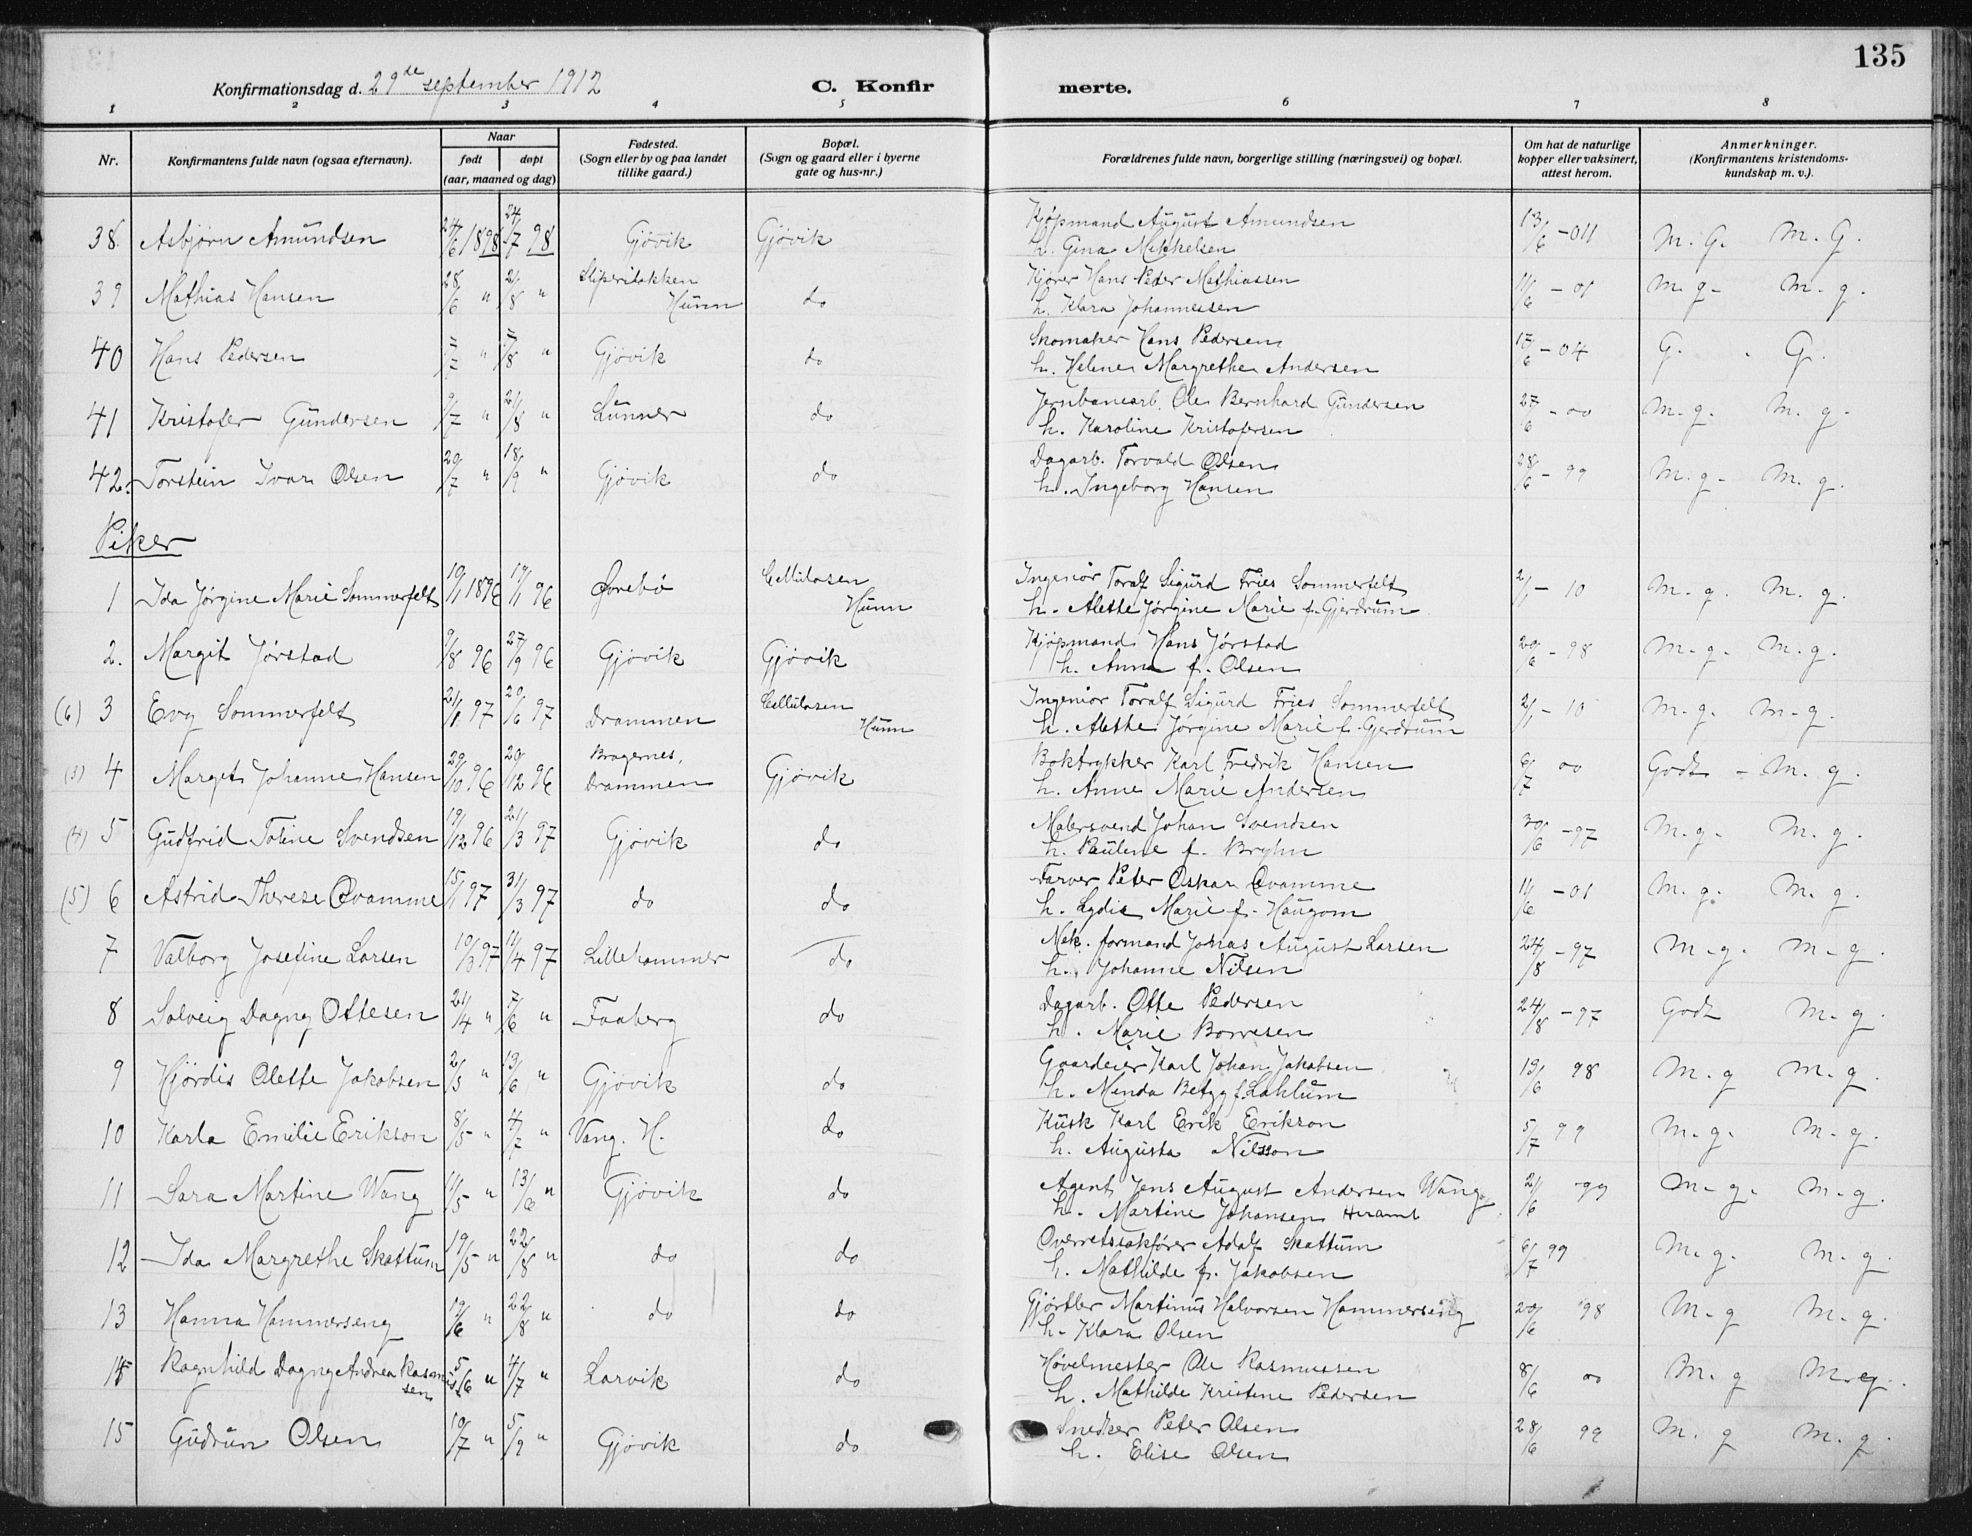 135
Konfirmationsdag d. 29de september 1912
C. Konfir merte.
1 2 3 4 5 6 7 8
Nr.
Konfirmantens fulde navn (ogsaa efternavn).
Naar
født døpt
(aar, maaned og dag)
Fødested.
(Sogn eller by og paa landet
tillike gaard.)
Bopæl.
(Sogn og gaard eller i byerne
gate og hus-nr.)
Forældrenes fulde navn, borgerlige stilling (næringsvei) og bopæl.
Om hat de naturlige
kopper eller vaksinert,
attest herom.
Anmerkninger.
(Konfirmantens kristendoms-
kundskap m. v.).
38. Asbjørn Amundsen 24/6 1898 24/7 98 Gjøvik Gjøvik Kjøpmand August Amundsen 13/6 -04 M. G. M. G.
h. Gina Mikkelsen
39 Mathias Hansen 28/6 " 21/8 " Sliperiløkken Hunn do Kjører Hans Peder Mathiassen 11/6 - 01 M. g. M. g.
h. Klara Johannessen
40 Hans Pedersen 7/7 " 7/8 " Gjøvik do Skomaker Hans Pedersen 15/6 - 04 G. G.
h. Helene Margrethe Andersen
41 Kristofer Gundersen 9/7 " 21/8 " Lunner do Jernbanearb. Ole Bernhard Gundersen 27/6 - 00 M. g. M. g.
h. Karoline Kristofersen
42. Torstein Ivar Olsen 20/7 " 18/9 " Gjøvik do Dagarb. Torvald Olsen 28/6 - 99 M. g. M. g.
h. Ingeborg Hansen
Piker
1 Ida Jørgine Marie Sommerfelt 10/1 1896 19/1 96 Ørebø Cellulosen Hunn Ingeniør Toralf Sigurd Fries Sommerfelt 2/1 - 10 M. g. M. g.
h. Alette Jørgine Marie f. Gjerdrum
2. Margit Jørstad 9/8 96 27/9 96 Gjøvik Gjøvik Kjøpmand Hans Jørstad 20/6 - 98 M. g. M. g.
h. Anna f. Olsen
(6) 3 Evy Sommerfelt 21/1 97 20/6 97 Drammen Cellulosen Hunn Ingeniør Toralf Sigurd Fries Sommerfelt 2/1 - 10 M. g. M. g.
h. Alethe Jørgine Marie f. Gjerdrum
(3) 4 Margit Johanne Hansen 29/10 96 20/12 96 Bragernes, Drammen Gjøvik Boktrykker Karl Fredrik Hansen 6/7 00 Godt - M. g.
h. Anne Marie Andersen
(4) 5 Gudfrid Toline Svendsen 19/12 96 21/3 97 Gjøvik do Malersvend Johan Svendsen 30/6 - 97 M. g. M. g.
h. Pauline f. Bryhn
(5) 6 Astrid Therese Qvamme 15/1 97 31/3 97 do do Farver Peter Oskar Qvamme 11/6 - 01 M. g. M. g.
h. Lydia Marie f. Haugom
7 Valborg Josefine Larsen 10/3 97 11/4 97 Lillehammer do Mek. formand Johas August Larsen 24/8 - 97 M. g. M. g.
h. Johanne Nilsen
8 Solveig Dagny Ottesen 21/4 " 7/6 " Faaberg do Dagarb. Otte Pedersen 24/8 - 97 Godt M. g.
h. Marie Borresen
9 Hjørdis Alette Jakobsen 2/3 " 13/6 " Gjøvik do Gaardeier Karl Johan Jakobsen 13/6 98 M. g M. g.
h. Menda Betzy f. Lahlum
10 Karla Emilie Erikson 8/5 " 4/7 " Vang. H. do Kusk Karl Erik Erikson 5/7 99 M. g. M. g.
h. Augusta Nilsson
11 Sara Martine Wang 11/5 " 13/6 " Gjøvik do Agent Jens August Andersen Wang 21/6 99 M. g. M. g.
h. Martine Johansen
12 Ida Margrethe Skattum 19/5 " 22/8 " do do Overretssakfører Adolf Skattum 6/7 99 M. g. M. g.
h. Mathilde f. Jakobsen
13 Hanna Hammerseng 19/6 " 22/8 " do do Gjørtler Martinus Halvorsen Hammerseng 20/6 98 M. g M. g.
h. Klara Olsen
14 Ragnhild Dagny Andrea Rasmussen 5/6 " 4/7 " Larvik do Høvelmester Ole Rasmussen 8/6 00 M. g M. g.
h. Mathilde Kristine Pedersen
15 Gudrun Olsen 10/7 " 5/9 " Gjøvik do Snedker Peter Olsen 28/6 99 M. g M. g.
h. Elise Olsen